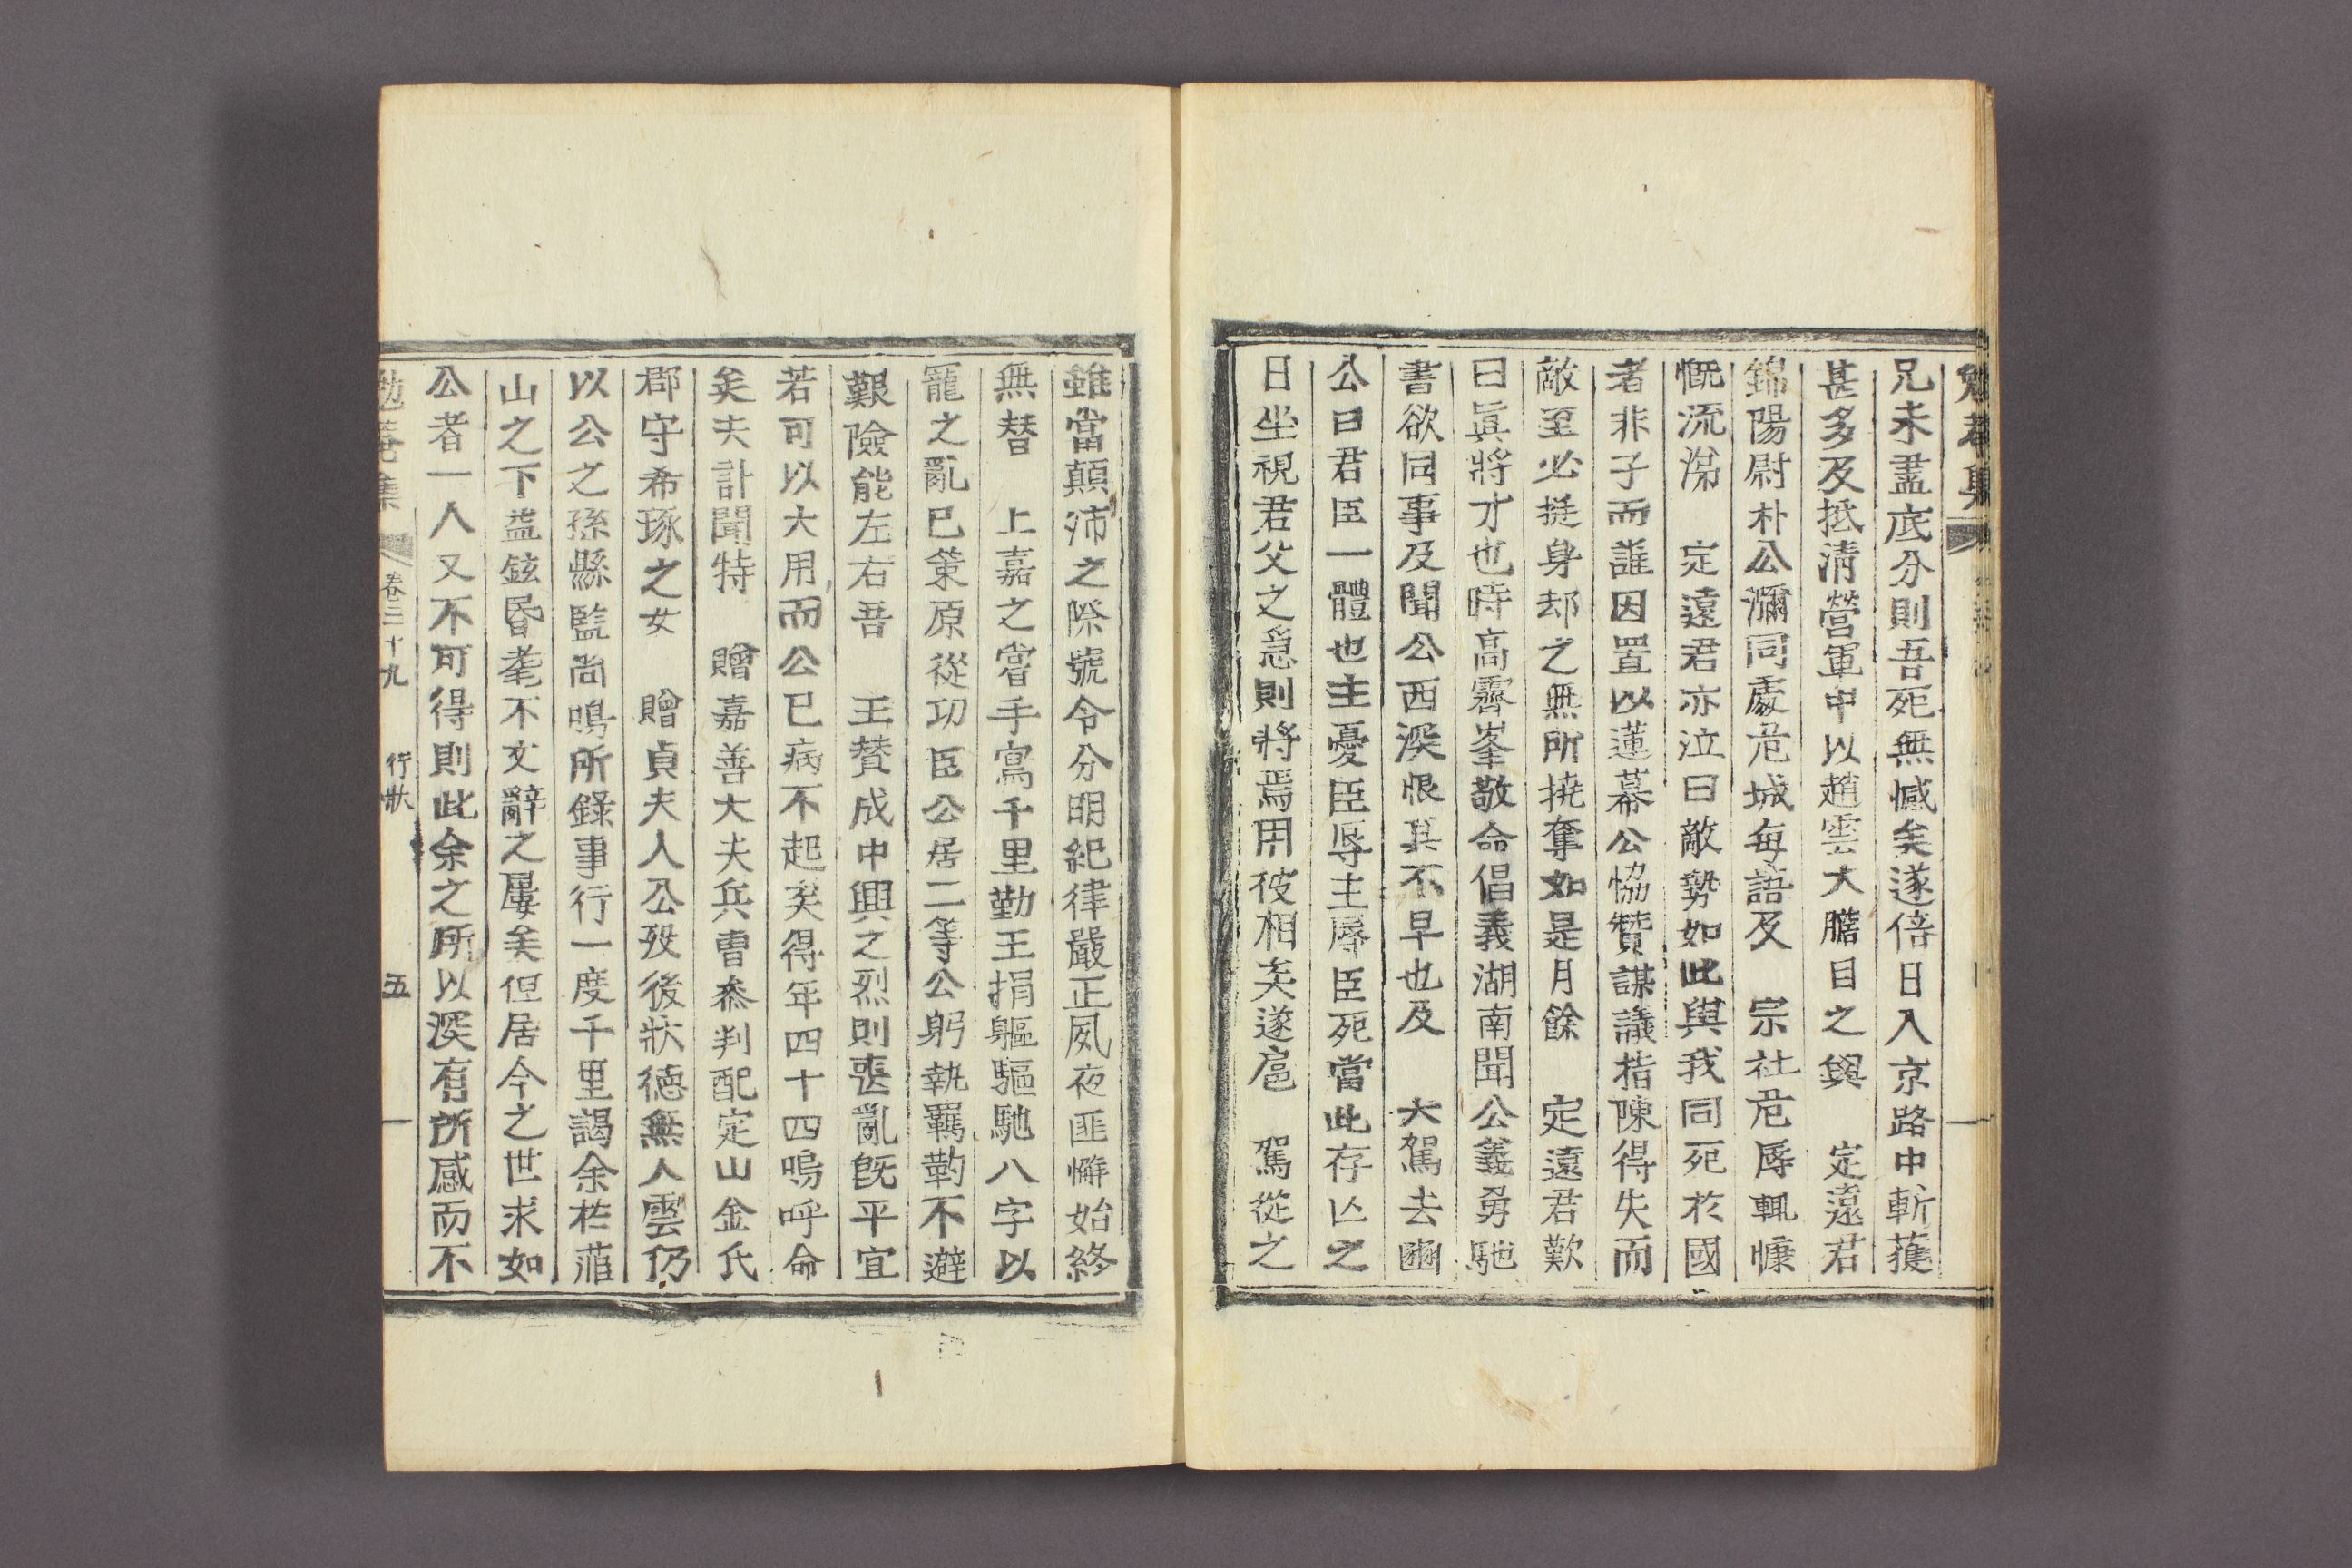 勉菴集
兄未盡底分則吾死無憾矣遂倍日入京路中斬獲
甚多及抵淸營軍中以趙雲大膽目之與 定遠君
錦陽尉朴公瀰同處危城每語及 宗社危辱輒慷
慨流涕 定遠君亦泣曰敵勢如此與我同死於國
者非子而誰因置以蓮幕公恊贊謀議指陳得失而
敵至必挺身却之無所撓奪如是月餘 定遠君歎
曰眞將才也時高霽峯敬命倡義湖南聞公義勇馳
書欲同事及聞公西深恨其不早也及 大駕去豳
公曰君臣一體也主憂臣辱主辱臣死當此存亡之
日坐視君父之急則將焉用彼相矣遂扈 駕從之
雖當顚沛之際號令分明紀律嚴正夙夜匪懈始終
無替 上嘉之嘗手寫千里勤王捐軀驅馳八字以
寵之亂已策原從功臣公居二等公躬執羈靮不避
艱險能左右吾 王贊成中興之烈則喪亂旣平宜
若可以大用而公已病不起矣得年四十四嗚呼命
矣夫訃聞特 贈嘉善大夫兵曹叅判配定山金氏
郡守希琢之女 贈貞夫人公歿後狀德無人雲仍
以公之孫縣監尙鳴所錄事行一度千里謁余於菹
山之下盖鉉昬耄不文辭之屢矣但居今之世求如
公者一人又不可得則此余之所以深有所感而不
勉菴集 卷三十九 行狀 五